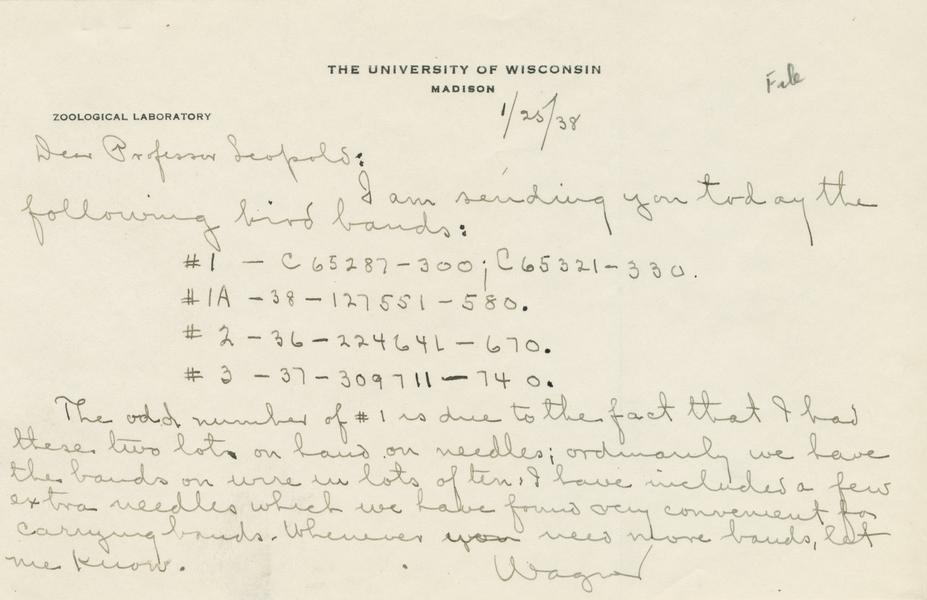 THE UNIVERSITY OF WISCONSIN
MADISON
File
ZOOLOGICAL LABORATORY
1/25/38
Dear Professor Leopold:
I am sending you today the
following bird bands:
#1 — C65287-300; C65321-330.
#1A -38-127551-580.
# 2 -36-224641-670.
# 3 -37-309711-740.
The odd number of #1 is due to the fact that I had
these two lots on hand on needles; ordinarily we have
the bands on wire in lots of ten. I have included a few
extra needles which we have found very convenient for
carrying bands. Whenever you need more bands, let
me know.
Wagner